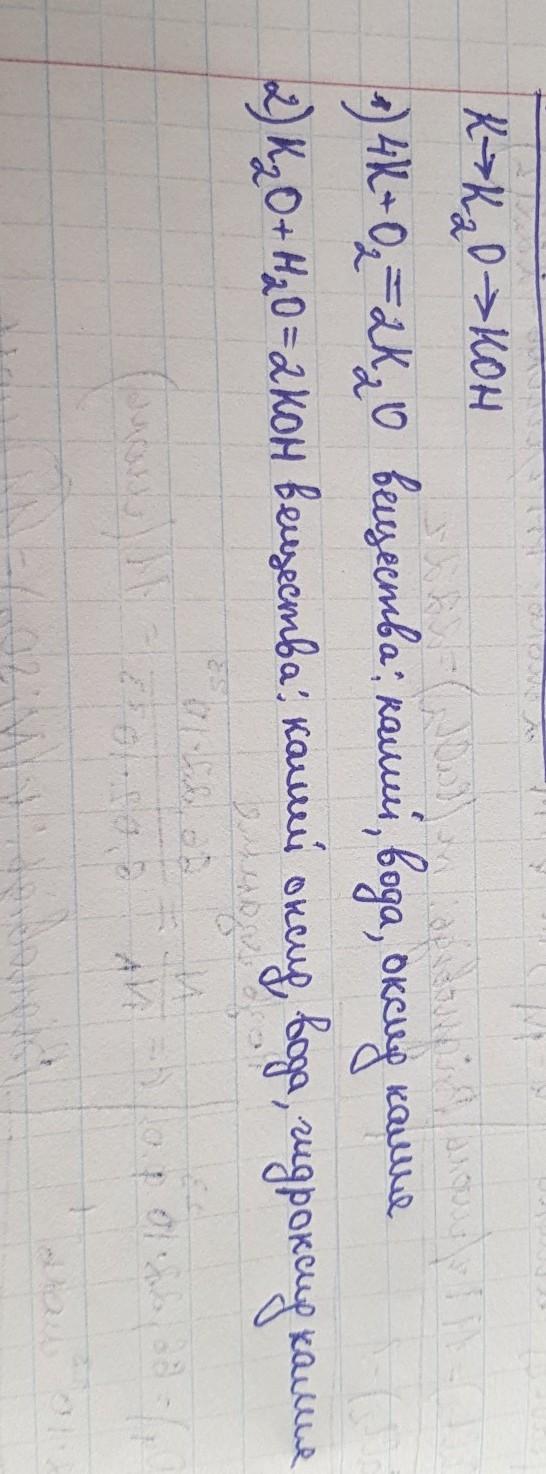 K→K₂O→KOH
1) 4K+O₂=2K₂O вещества: калий, вода, оксид калия
2) K₂O+H₂O=2KOH вещества: калий оксид, вода, гидроксид калия